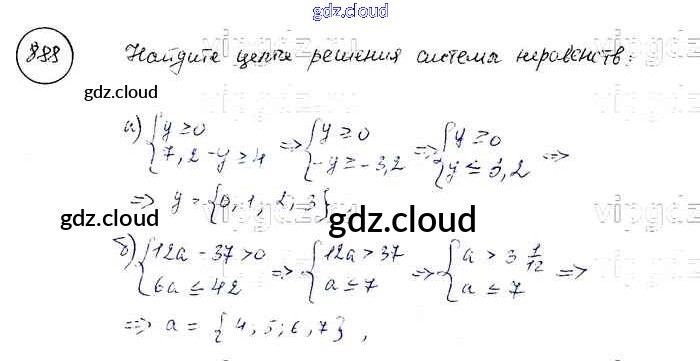 gdz.cloud
888 Найдите целые решения системы неравенств:
gdz.cloud
а) { y ≥ 0 ; 7,2 - y ≥ 4 => { y ≥ 0 ; -y ≥ -3,2 => { y ≥ 0 ; y ≤ 3,2 =>
=> y = {0, 1, 2, 3}
gdz.cloud gdz.cloud gdz.cloud
б) { 12a - 37 > 0 ; 6a ≤ 42 => { 12a > 37 ; a ≤ 7 => { a > 3 1/12 ; a ≤ 7 =>
=> a = {4; 5; 6, 7},